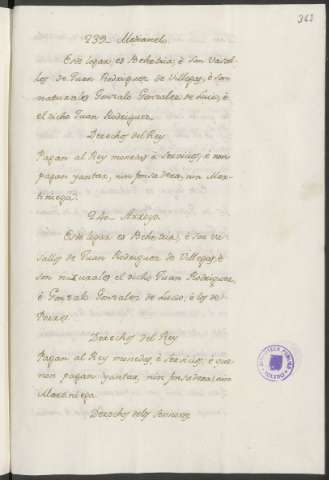 362
239. Melianel.
Este logar es Behetria, é son Vasal-
los de Juan Rodriguez de Villegas, é son
naturales Gonzalo Gonzalez de Lucio, é
el dicho Juan Rodriguez.
Derechos del Rey
Pagan al Rey monedas é servicios, é non
pagan yantar, nin fonsadera, nin Mar-
tiniega.
240. Arroyo.
Este logar es Behetria, é son va-
sallos de Juan Rodriguez de Villegas, é
son naturales el dicho Juan Rodriguez,
é Gonzalo Gonzalez de Lucio, é los de
Porres
Derechos del Rey
Pagan al Rey monedas, é servicios, é que
non pagan yantar, nin fonsadera, nin
Martiniega
Derechos delos Senores